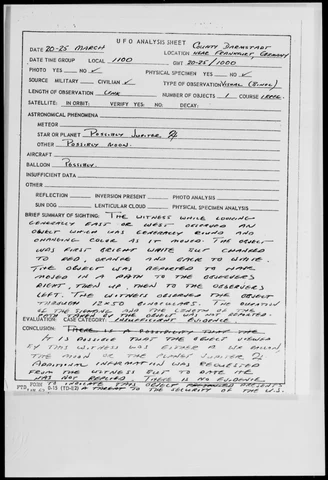 UFO ANALYSIS SHEET
COUNTY DARMSTADT
DATE 20-25 MARCH LOCATION NEAR FRANKFURT, GERMANY
DATE TIME GROUP LOCAL 1100 GMT 20-25/1000
PHOTO YES NO ✓ PHYSICAL SPECIMEN YES NO ✓
SOURCE MILITARY CIVILIAN ✓ TYPE OF OBSERVATION VISUAL (BINOC)
LENGTH OF OBSERVATION UNK NUMBER OF OBJECTS 1 COURSE
SATELLITE: IN ORBIT: VERIFY YES: NO: DECAY:
ASTRONOMICAL PHENOMENA
METEOR
STAR OR PLANET POSSIBLY JUPITER ♃
OTHER POSSIBLY MOON.
AIRCRAFT
BALLOON POSSIBLY.
INSUFFICIENT DATA
OTHER
REFLECTION INVERSION PRESENT PHOTO ANALYSIS
SUN DOG LENTICULAR CLOUD PHYSICAL SPECIMEN ANALYSIS
BRIEF SUMMARY OF SIGHTING: THE WITNESS WHILE LOOKING
GENERALLY EAST OR WEST OBSERVED AN
OBJECT WHICH WAS GENERALLY ROUND AND
CHANGING COLOR AS IT MOVED. THE OBJECT
WAS FIRST BRIGHT WHITE BUT CHANGED
TO RED, ORANGE AND BACK TO WHITE.
THE OBJECT WAS REPORTED TO HAVE
MOVED IN A PATH TO THE OBSERVERS
RIGHT, THEN UP, THEN TO THE OBSERVERS
LEFT. THE WITNESS OBSERVED THE OBJECT
THROUGH 12X50 BINOCULARS. THE DURATION
OF THE SIGHTING AND THE LENGTH OF THE
PATH TAKEN BY THE OBJ WAS NOT REPORTED.
EVALUATION: CASE CATEGORY: INSUFFICIENT EVIDENCE
CONCLUSION: THERE IS A POSSIBILITY THAT THE
IT IS POSSIBLE THAT THE OBJECT VIEWED
BY THIS WITNESS WAS EITHER A BALLOON,
THE MOON OR THE PLANET JUPITER ♃
ADDITIONAL INFORMATION WAS REQUESTED
FROM THE WITNESS BUT TO DATE HE
HAS NOT REPLIED. THERE IS NO EVIDENCE
FTD FORM 0-13 (TD-E2) TO INDICATE THIS OBJECT PRESENTS
A THREAT TO THE SECURITY OF THE U.S.